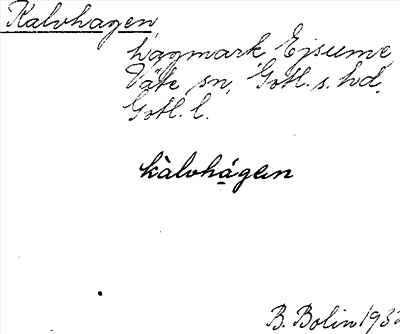 Kalvhagen,
hagmark, Ejsume,
Väte sn, Gotl. s. hd,
Gotl. l.
kàlvhágen
B. Bolin 193